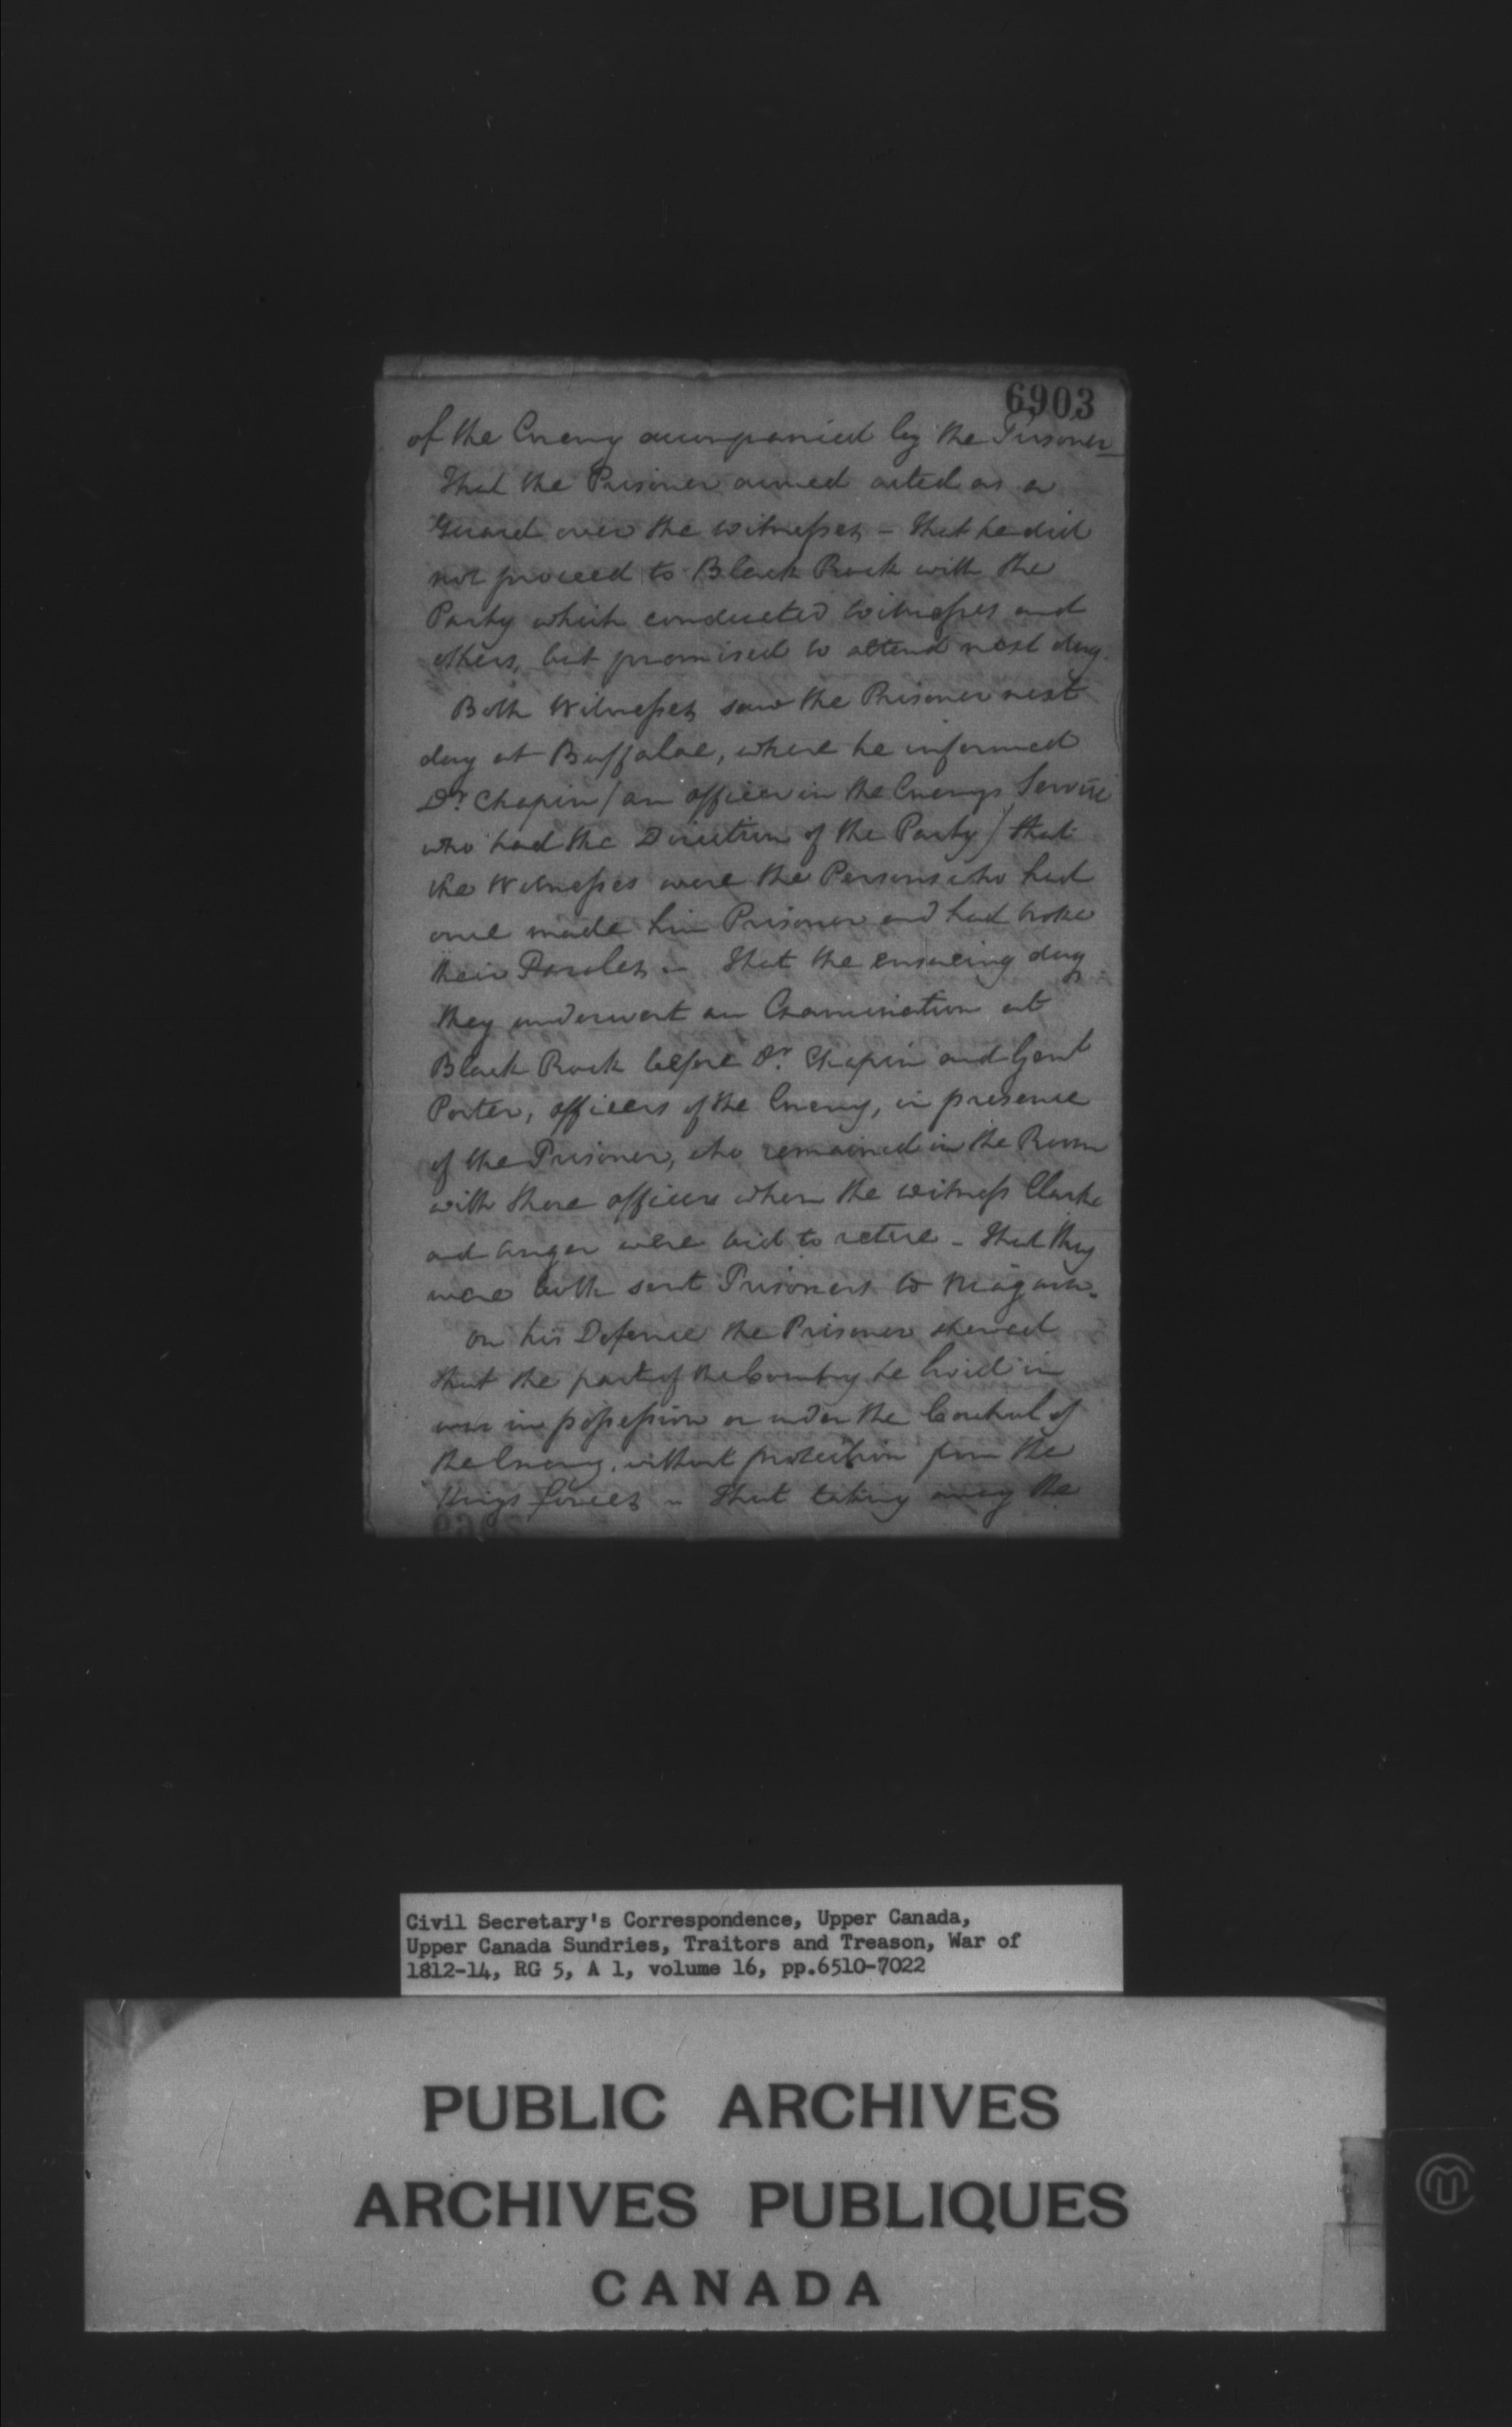 6903
of the Enemy accompanied by the Prisoner
That the Prisoner armed acted as a
Guard over the witnesses – That he did
not proceed to Black Rock with the
Party which conducted Witnesses and
others, but promised to attend next day.
Both Witnesses saw the Prisoner next
day at Buffaloe, where he informed
Dr. Chapin / an officer in the Enemys Service
who had the Direction of the Party / that
the Witnesses were the Persons who had
once made him Prisoner and had broke
their Paroles – That the ensueing day
they underwent an Examination at
Black Rock before Dr. Chapin and Genl
Porter, officers of the Enemy, in presence
of the Prisoner, who remained in the Room
with these officers when the witness Clarke
and were bid to retire – That they
were both sent Prisoners to Niagara.
On his Defence the Prisoner shewed
that the part of the Country he lived in
was in possession or under the Controul of
the Enemy, without protection from the
Kings forces – That taking away the
Civil Secretary's Correspondence, Upper Canada,
Upper Canada Sundries, Traitors and Treason, War of
1812-14, RG 5, A 1, volume 16, pp.6510-7022
PUBLIC ARCHIVES
ARCHIVES PUBLIQUES
CANADA